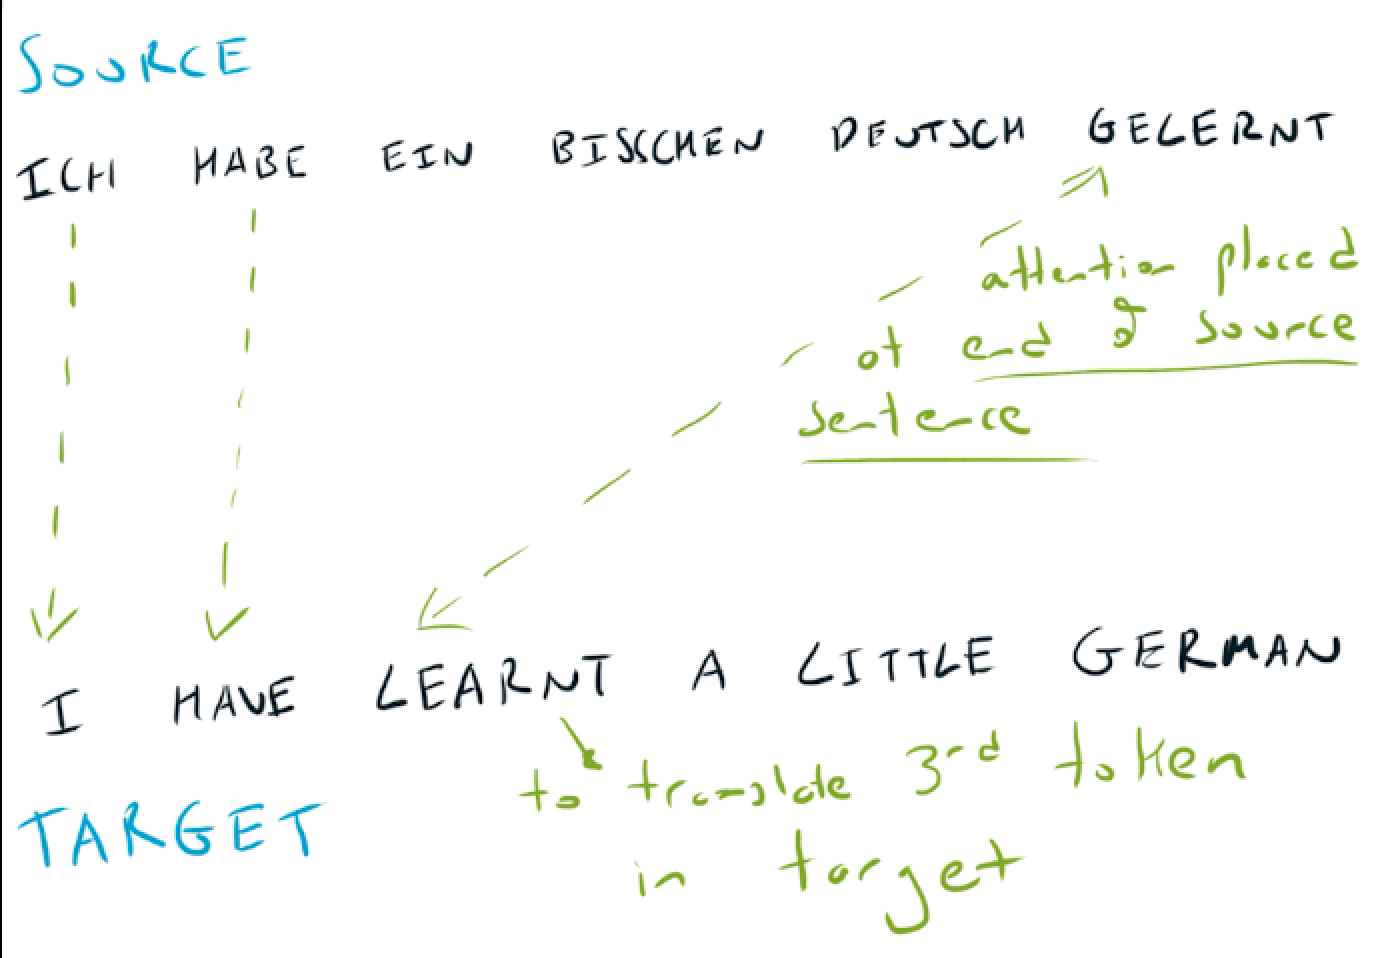 SOURCE
ICH HABE EIN BISSCHEN DEUTSCH GELERNT
attention placed
at end of source
sentence
I HAVE LEARNT A LITTLE GERMAN
to translate 3rd token
in target
TARGET